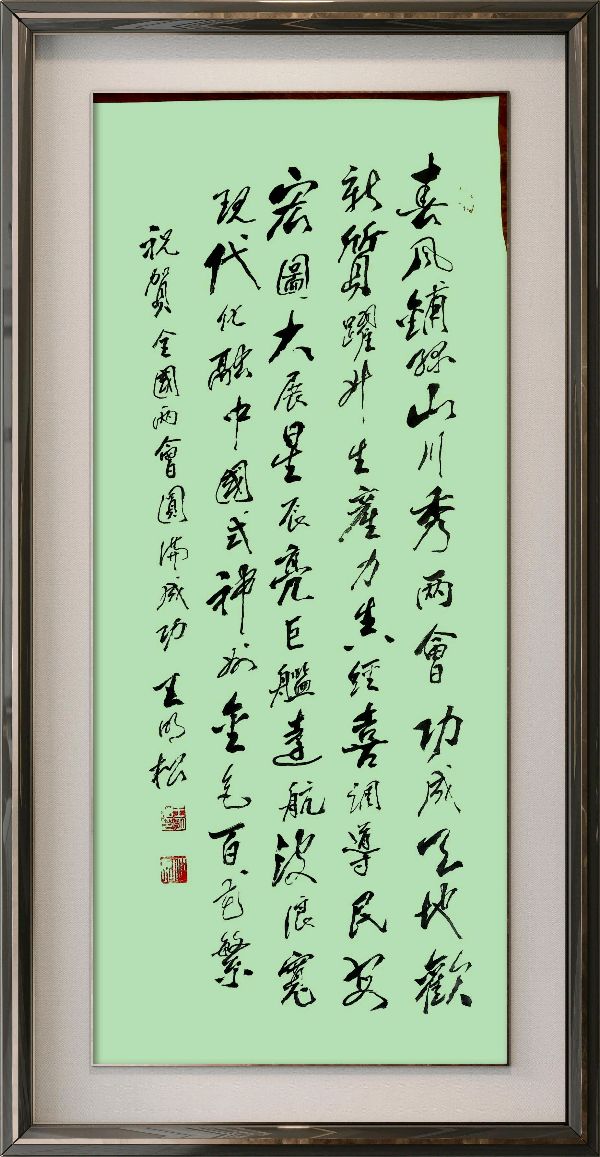 春风鋪綠山川秀兩會功成天地歡
新質躍升生產力經喜調導民安
宏圖大展星辰亮巨艦遠航波浪寬
現代化融中國式神州金色百花繁
祝賀全國兩會圓滿成功 王明松